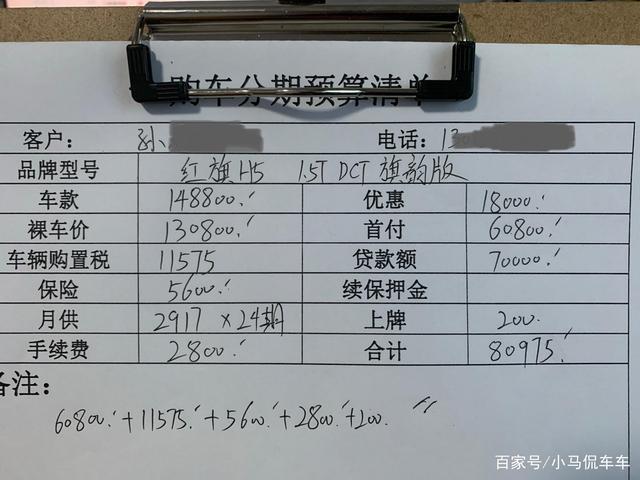 购车分期预算清单
客户： 孙 电话：130
品牌型号 红旗H5 1.5T DCT 旗韵版
车款 148800. 优惠 18000.
裸车价 130800. 首付 60800.
车辆购置税 11575 贷款额 70000.
保险 5600. 续保押金
月供 2917 ×24期 上牌 200.
手续费 2800. 合计 80975.
备注：
60800.+11575.+5600.+2800.+200.
百家号/小马侃车车